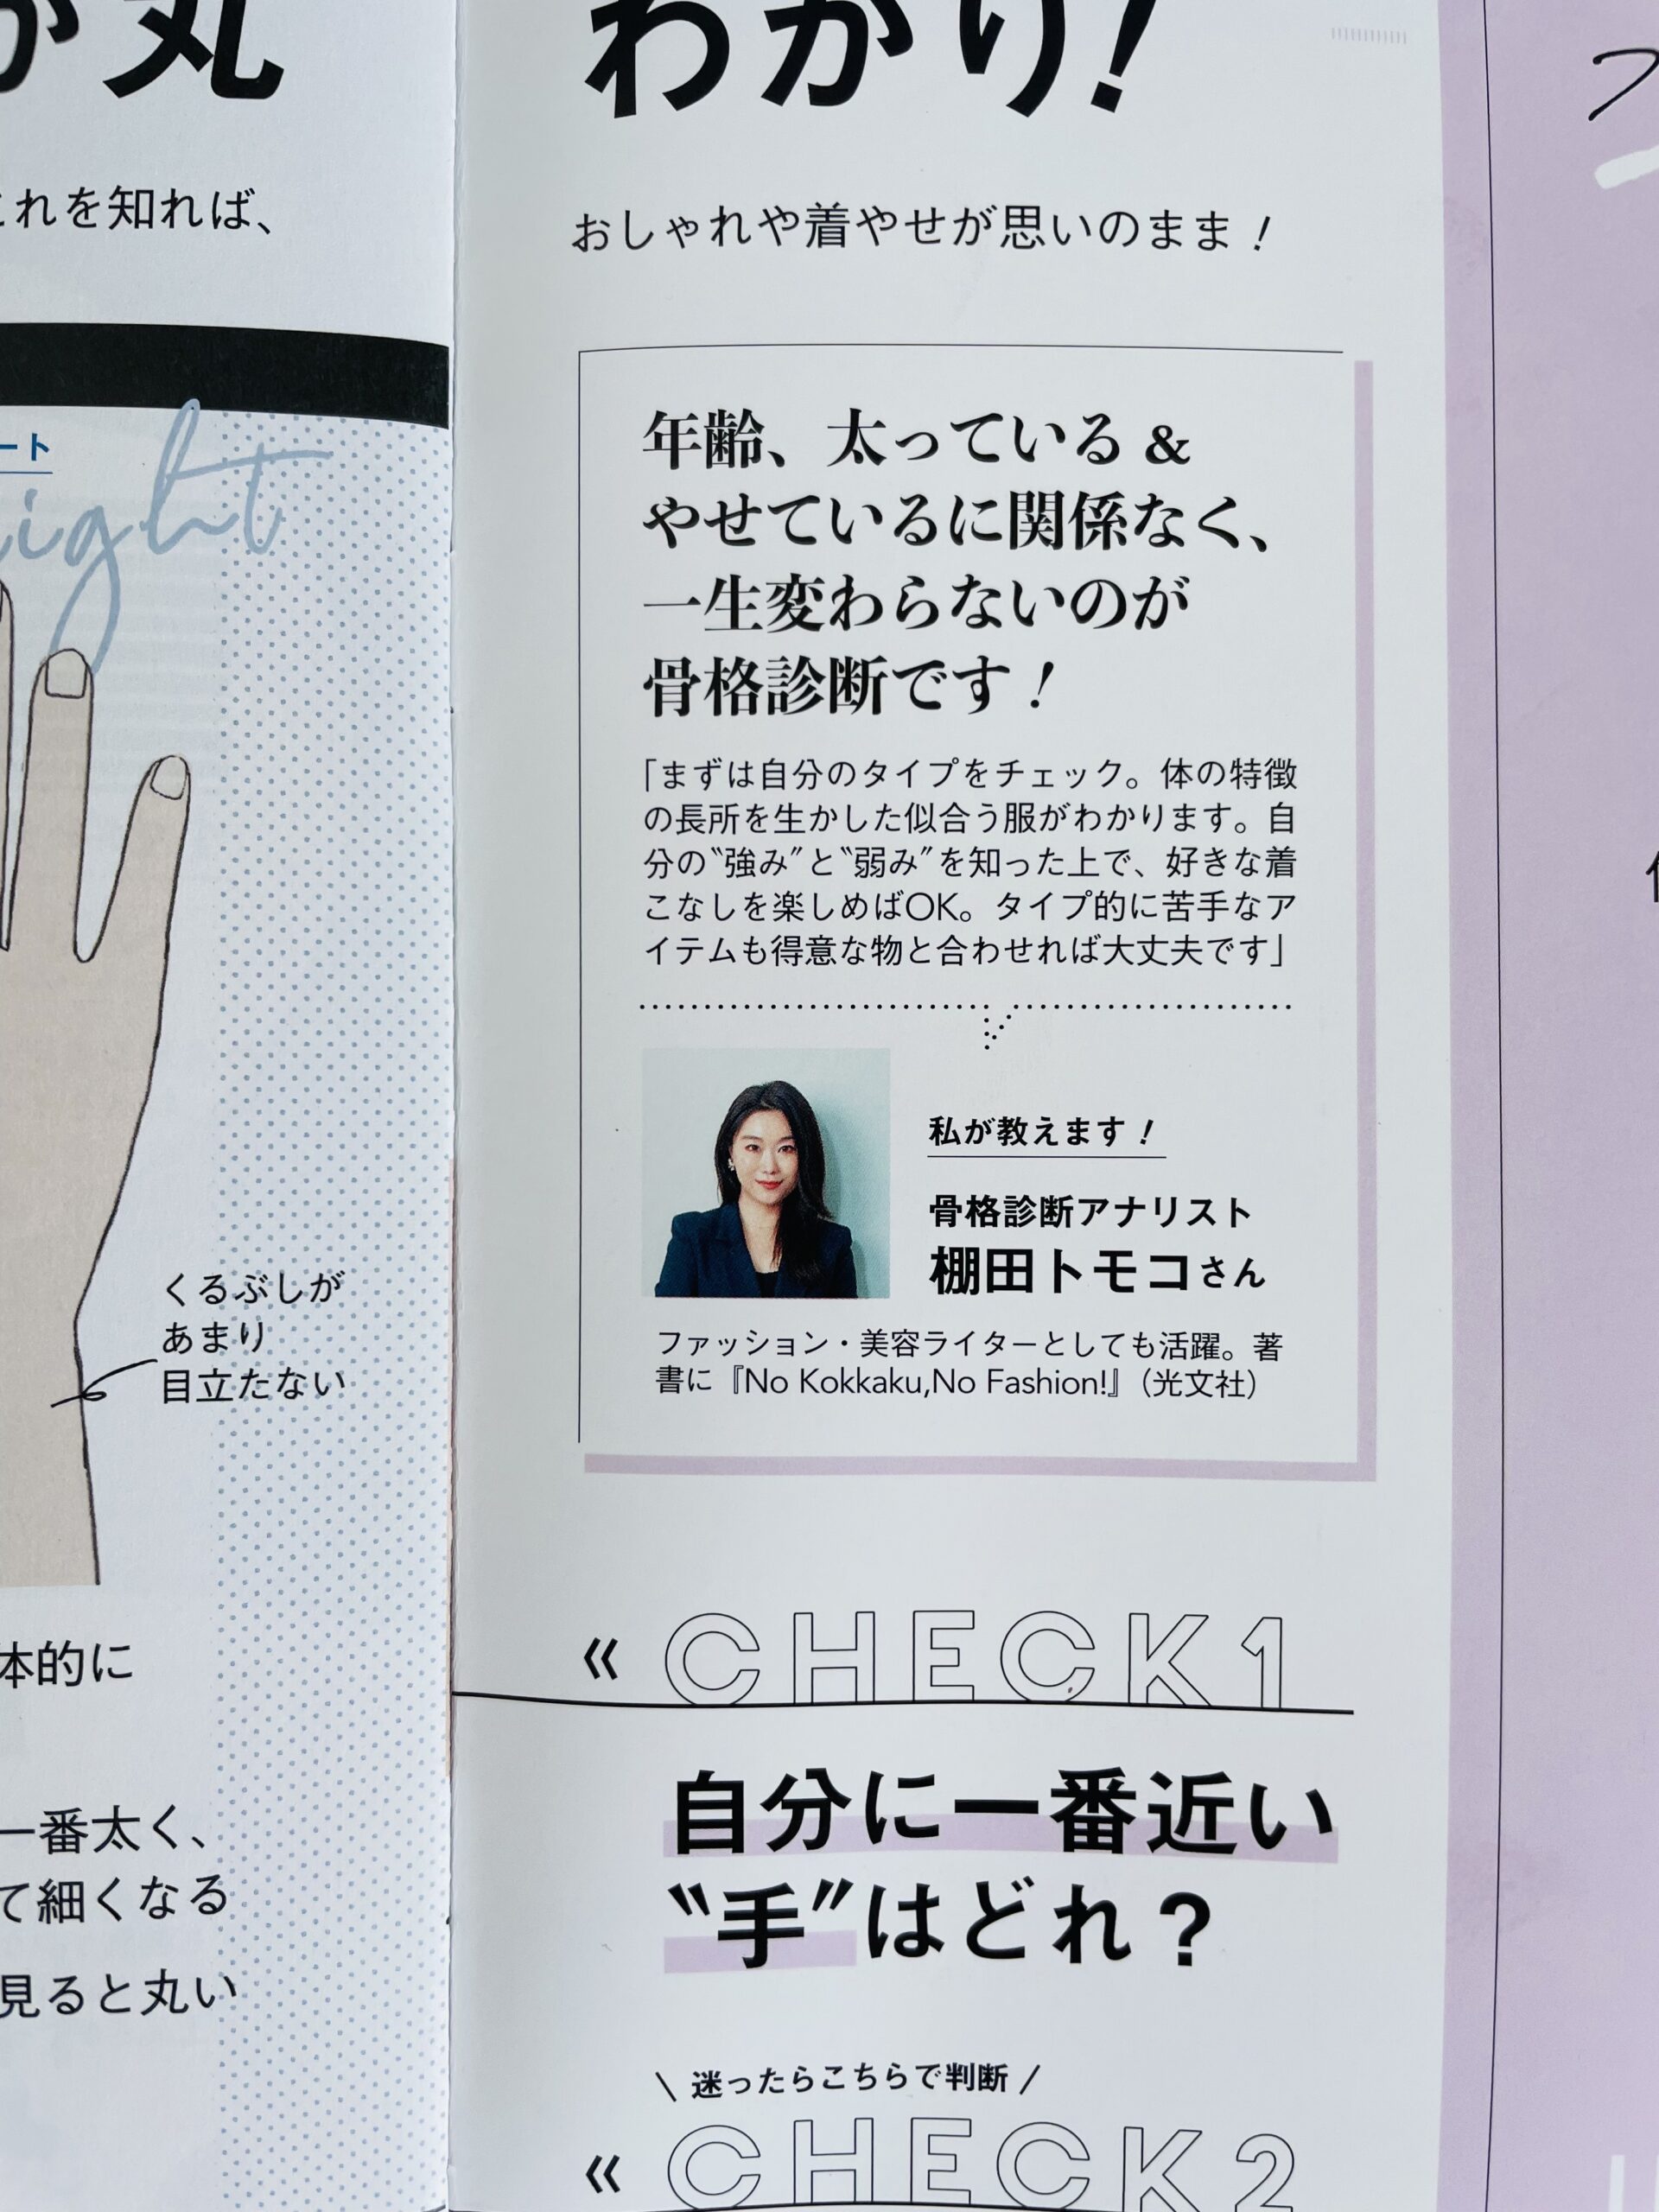 わかり!
おしゃれや着やせが思いのまま！
年齢、太っている &
やせているに関係なく、
一生変わらないのが
骨格診断です！
「まずは自分のタイプをチェック。体の特徴
の長所を生かした似合う服がわかります。自
分の〝強み〞と〝弱み〞を知った上で、好きな着
こなしを楽しめばOK。タイプ的に苦手なア
イテムも得意な物と合わせれば大丈夫です」
私が教えます！
骨格診断アナリスト
棚田トモコさん
ファッション・美容ライターとしても活躍。著
書に『No Kokkaku,No Fashion!』（光文社）
« CHECK1
自分に一番近い
〝手〞はどれ？
\ 迷ったらこちらで判断 /
« CHECK2
が丸
これを知れば、
ート
ight
くるぶしが
あまり
目立たない
体的に
一番太く、
て細くなる
見ると丸い